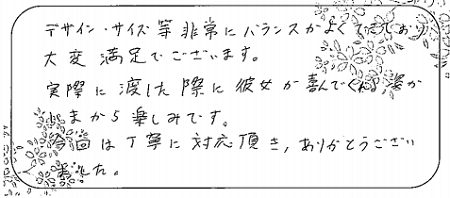 デザイン・サイズ等非常にバランスがよくできており
大変満足でございます。
実際に渡した際に彼女が喜んでくれる姿が
いまから楽しみです。
今回は丁寧に対応頂き、ありがとうござい
ました。